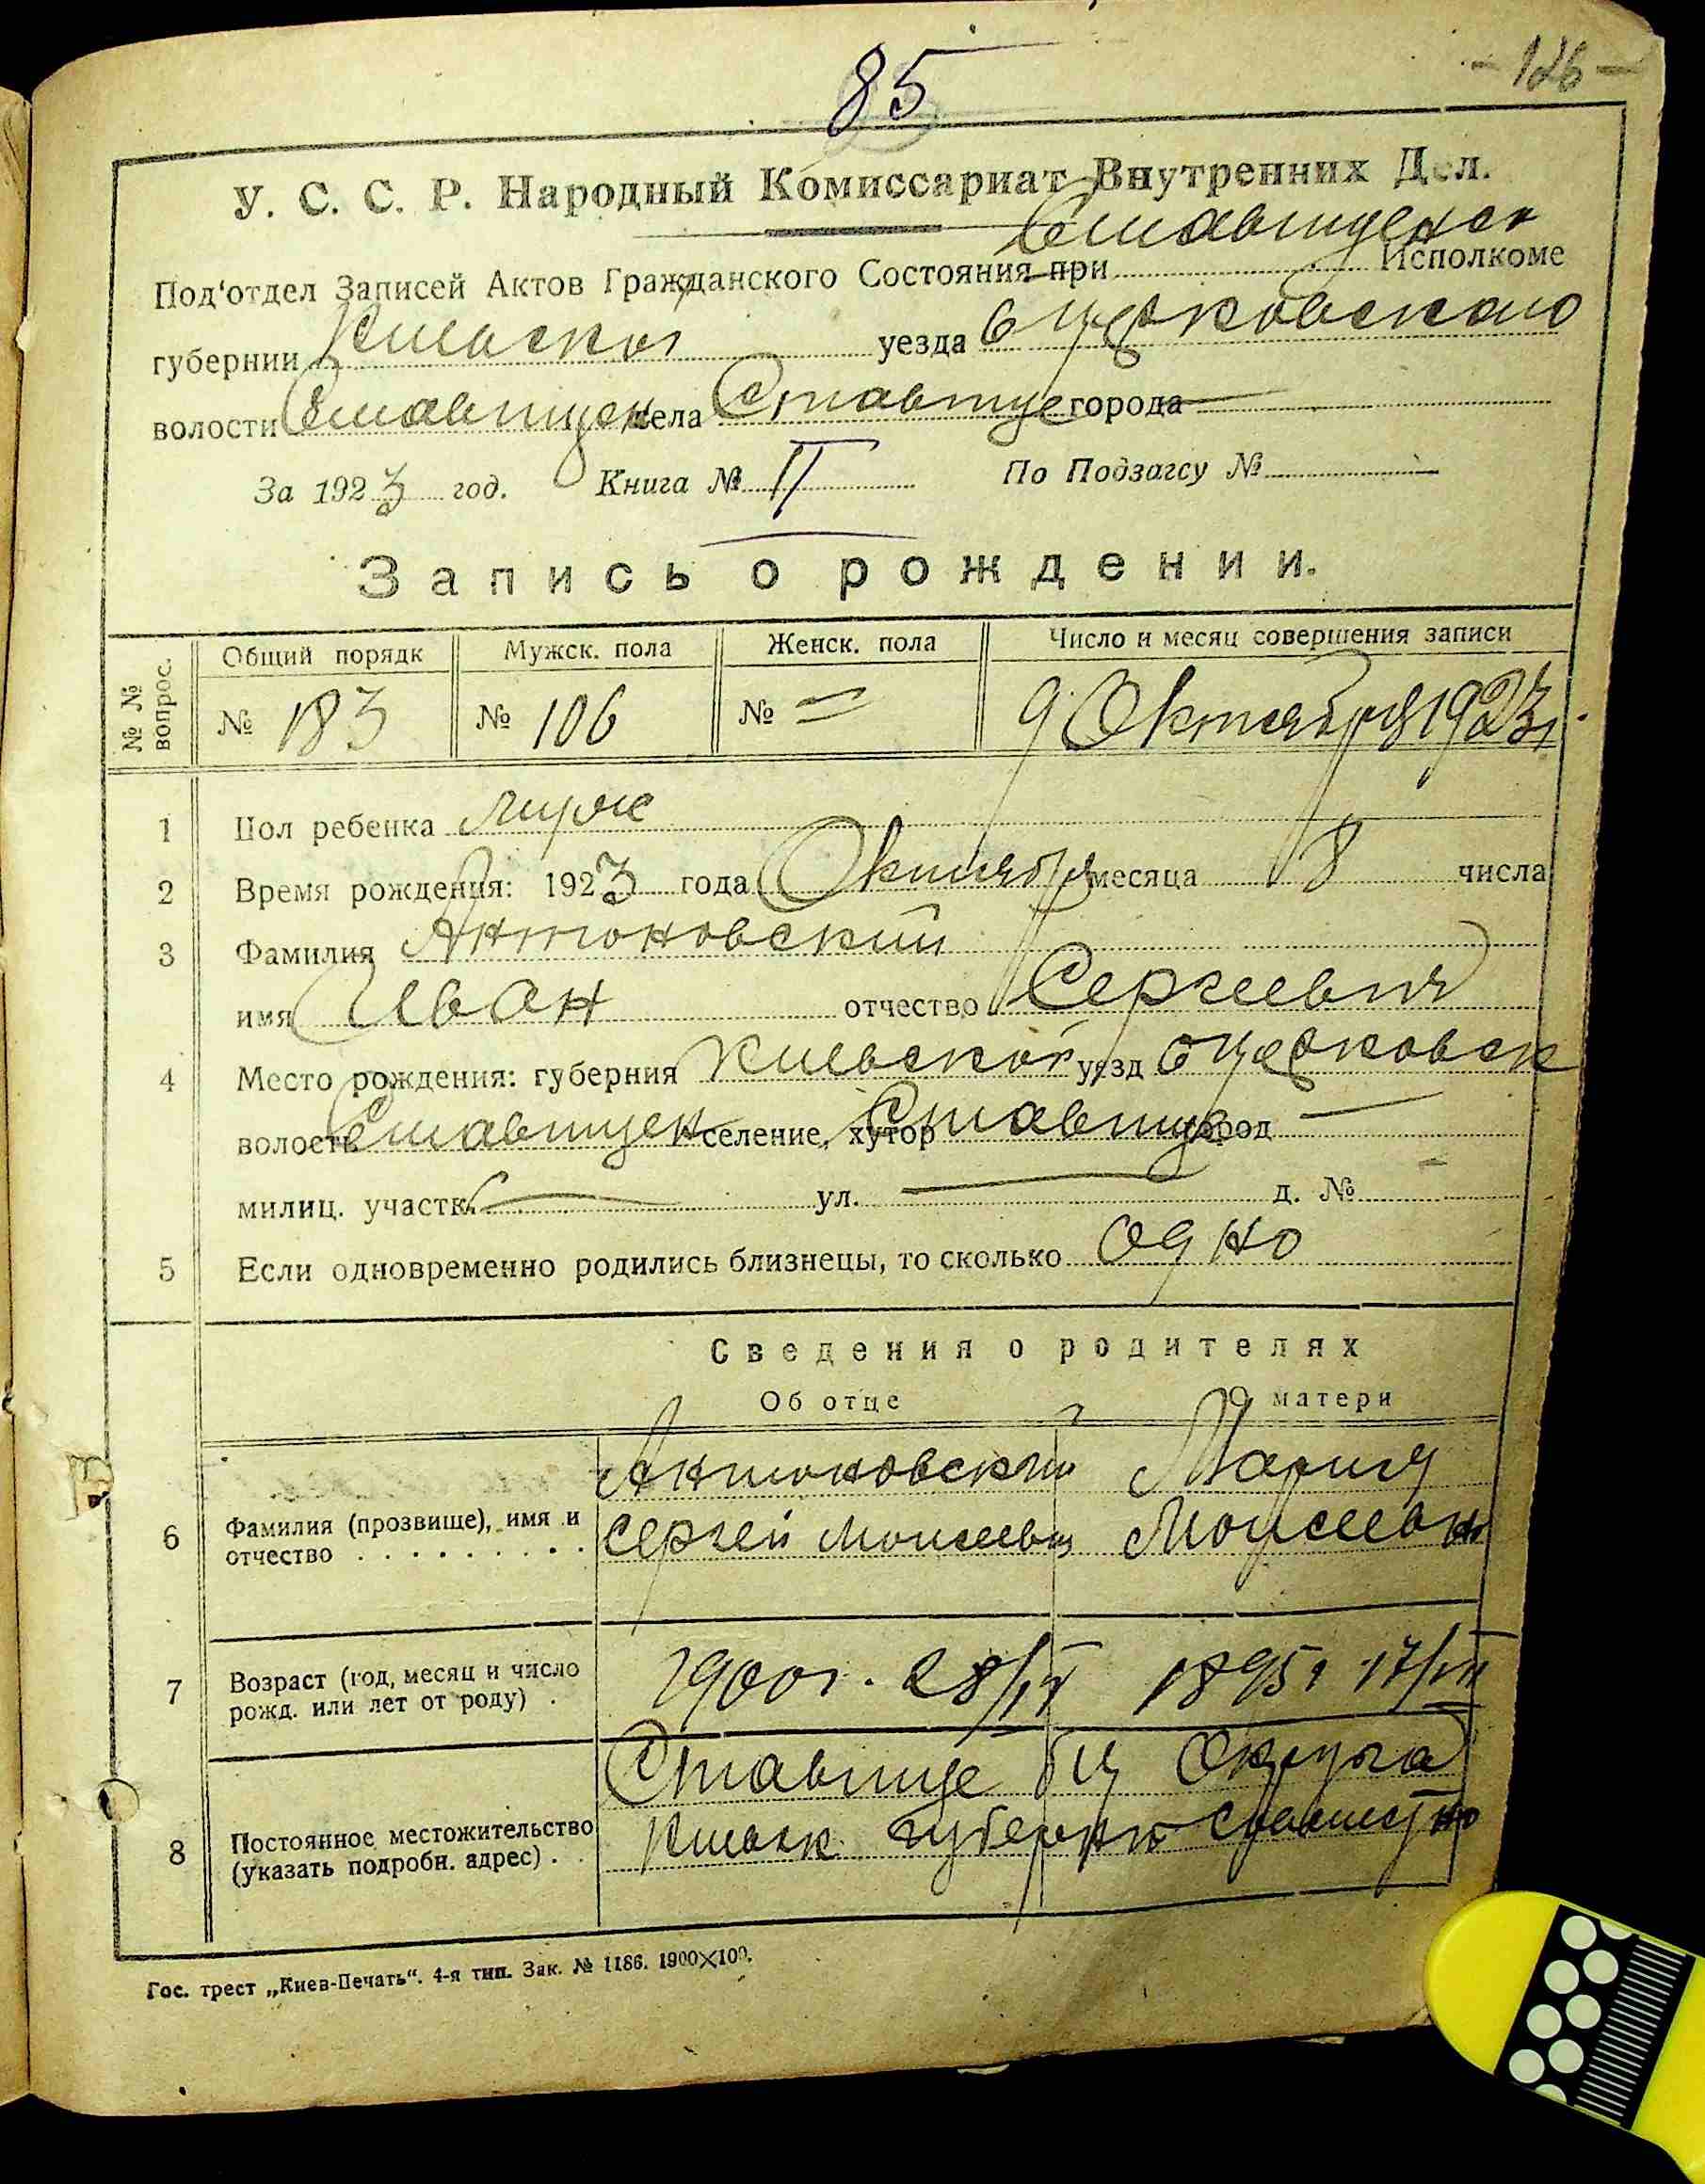 - 126 -
85
У. С. С. Р. Народный Комиссариат Внутренних Дел.
Под‘отдел Записей Актов Гражданского Состояния при Ставищенск Исполкоме
губернии Киевской уезда б церковского
волости Ставищен села Ставище города —
За 1923 год. Книга № II По Подзагсу № —
Запись о рождении.
№ № вопрос. Общий порядк Мужск. пола Женск. пола Число и месяц совершения записи
№ 183 № 106 № = 9 Октября 1923 г
1 Пол ребенка муж
2 Время рождения: 1923 года Октября месяца 8 числа
3 Фамилия Антоновский
имя Иван отчество Сергеевич
4 Место рождения: губерния Киевской уезд б церковск
волость Ставищен селение, хутор Ставище город —
милиц. участк. — ул. — д. № —
5 Если одновременно родились близнецы, то сколько одно
Сведения о родителях
Об отце О матери
Антоновский Мария
6 Фамилия (прозвище), имя и
отчество . . . . . . . . . Сергей Моисеевич Моисеевн
7 Возраст (год, месяц и число
рожд. или лет от роду) . 1900 г. 28/IX 1895 г 17/VII
Ставище бц Округа
8 Постоянное местожительство
(указать подробн. адрес) . . Киевск губерни совместно
Гос. трест „Киев-Печать“. 4-я тип. Зак. № 1186. 1900×100.